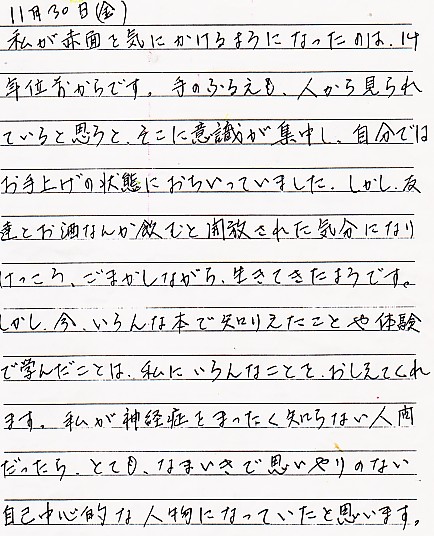 11月30日(金)
私が赤面を気にかけるようになったのは、14
年位前からです。手のふるえも、人から見られ
ていると思うと、そこに意識が集中し、自分では
お手上げの状態におちいっていました。しかし、友
達とお酒なんか飲むと開放された気分になり
けっこう、ごまかしながら、生きてきたようです。
しかし、今、いろんな本で知りえたことや体験
で学んだことは、私にいろんなことを、おしえてくれ
ます。私が神経症をまったく知らない人間
だったら、とても、なまいきで思いやりのない
自己中心的な人物になっていたと思います。